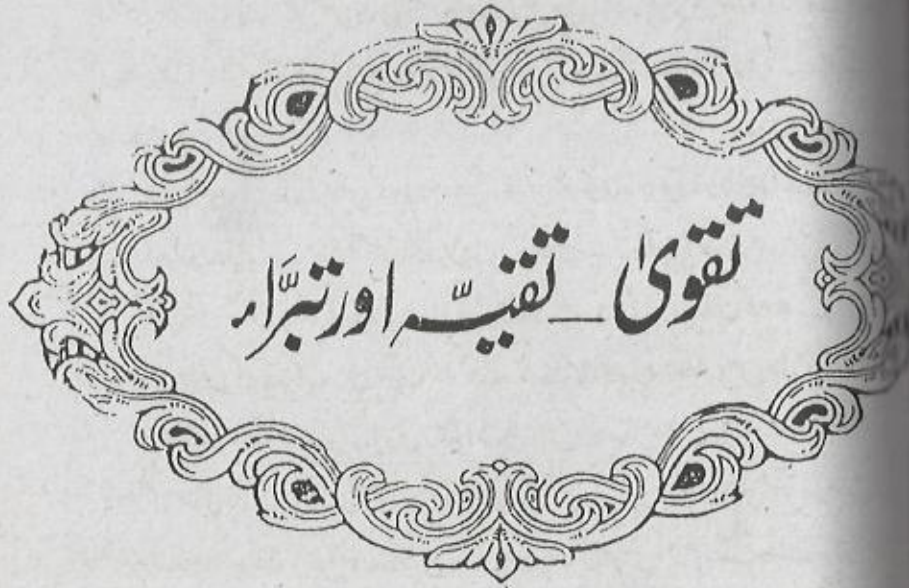 تقویٰ — تقیّہ اور تبرَّاء